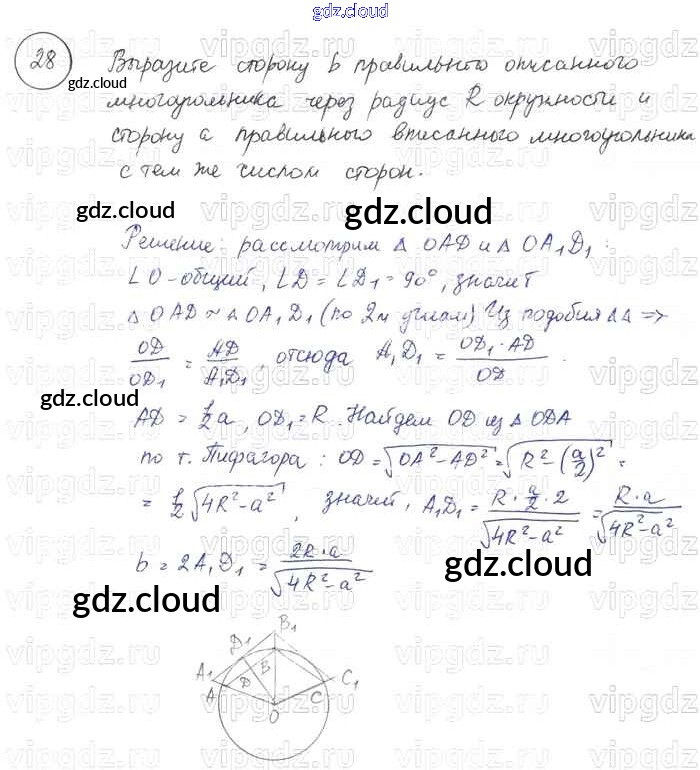 gdz.cloud
28
Выразите сторону b правильнго описанного
gdz.cloud
многоугольника через радиус R окружности и
сторону a правильного вписанного многоугольника
с тем же числом сторон.
gdz.cloud
gdz.cloud
Решение: рассмотрим △ OAD и △ OA₁D₁:
∠O-общий, ∠D = ∠D₁ = 90°, значит
△ OAD ~ △ OA₁D₁ (по 2м углам) Из подобия △△ =>
OD/OD₁ = AD/A₁D₁, отсюда A₁D₁ = OD₁·AD/OD.
gdz.cloud
gdz.cloud
AD = 1/2 a, OD₁ = R. Найдем OD из △ ODA
по т. Пифагора: OD = √(OA²-AD²) = √(R²-(a/2)²) =
= 1/2 √(4R²-a²), значит, A₁D₁ = R·a/2·2/√(4R²-a²) = R·a/√(4R²-a²)
gdz.cloud
b = 2A₁D₁ = 2R·a/√(4R²-a²)
gdz.cloud
gdz.cloud
B₁
D₁
B
A₁
D
C₁
A
C
O
vipgdz.ru